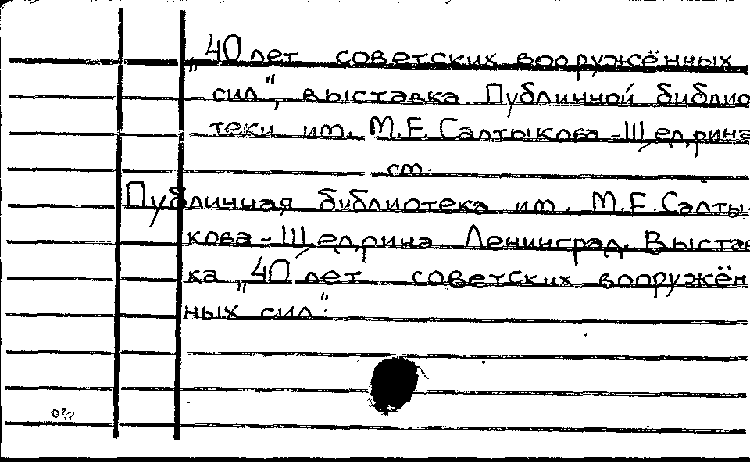 „40 лет советских вооружённых
сил", выставка Публичной библио
теки им. М.Е. Салтыкова-Щедрина
см.
Публичная библиотека им. М.Е. Салты-
кова-Щедрина Ленинград. Выстав
ка „40 лет советских вооружён
ных сил".